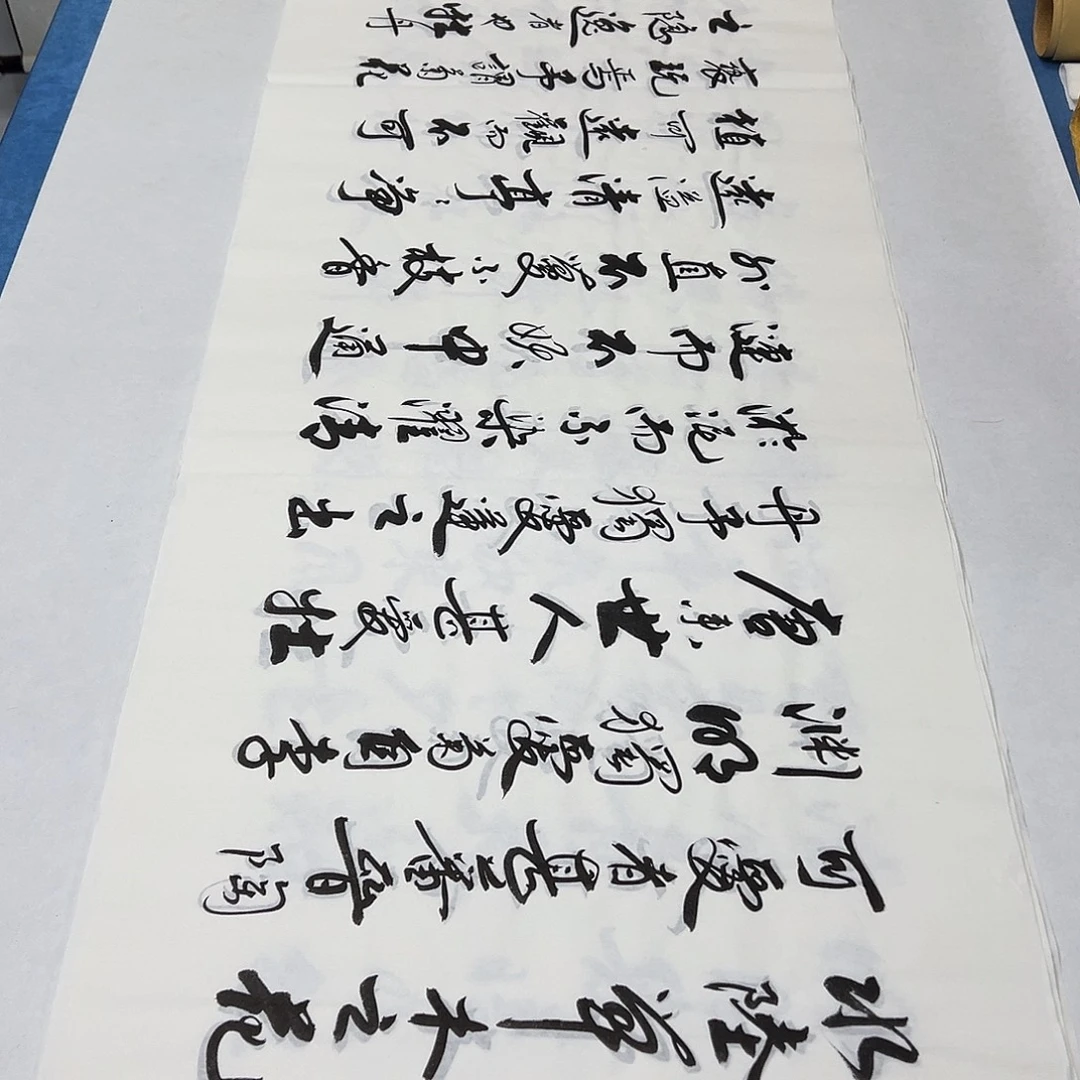 水陸草木之花
可愛者甚蕃晉陶
淵明獨愛菊自李
唐來世人甚愛牡
丹予獨愛蓮之出
淤泥而不染濯清
漣而不妖中通
外直不蔓不枝香
遠益清亭〻淨
植可遠觀而不可
褻玩焉予謂菊花
之隱逸者也牡丹